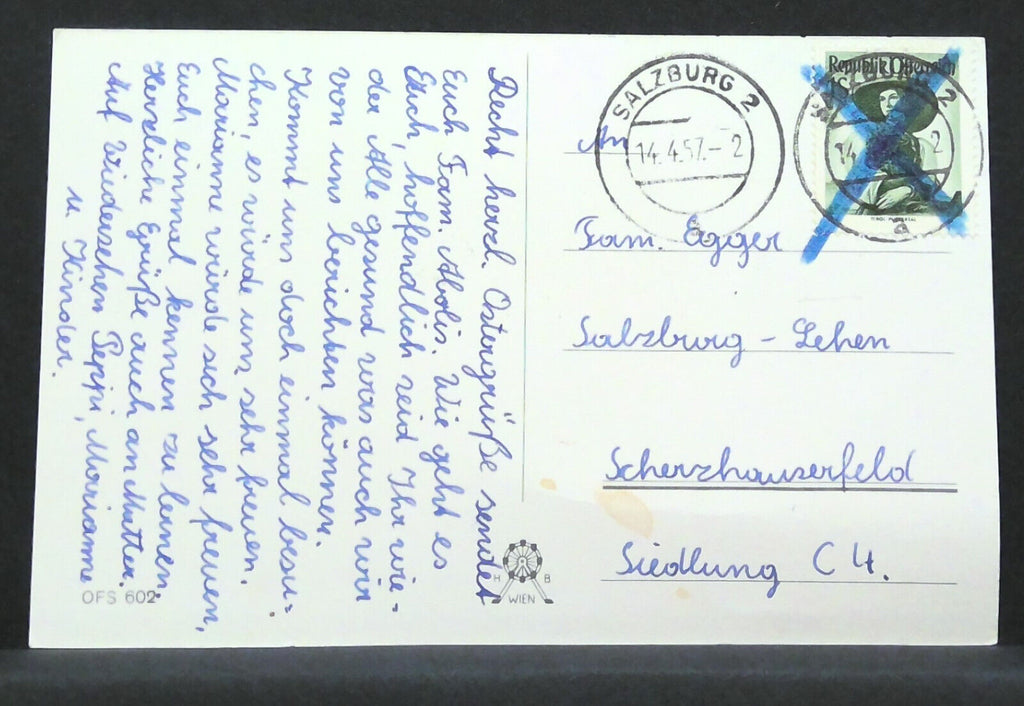 Recht herzl. Ostergrüße sendet
Euch Fam. Alolis. Wie geht es
Euch, hoffendlich seid Ihr wie-
der Alle gesund was auch wir
von uns berichten können.
Kommt uns doch einmal besu-
chen, es würde uns sehr freuen.
Marianne würde sich sehr freuen,
Euch einmal kennen zu lernen.
Herzliche Grüße auch an Mutter.
Auf Wiedersehen Peppi, Marianne
u. Kinder.
OFS 602
H B
WIEN
SALZBURG 2
14.4.57.-2
a
Republik Österreich
1S
2
14
2
a
An
Fam. Egger
Salzburg - Lehen
Scherzhauserfeld
Siedlung C 4.